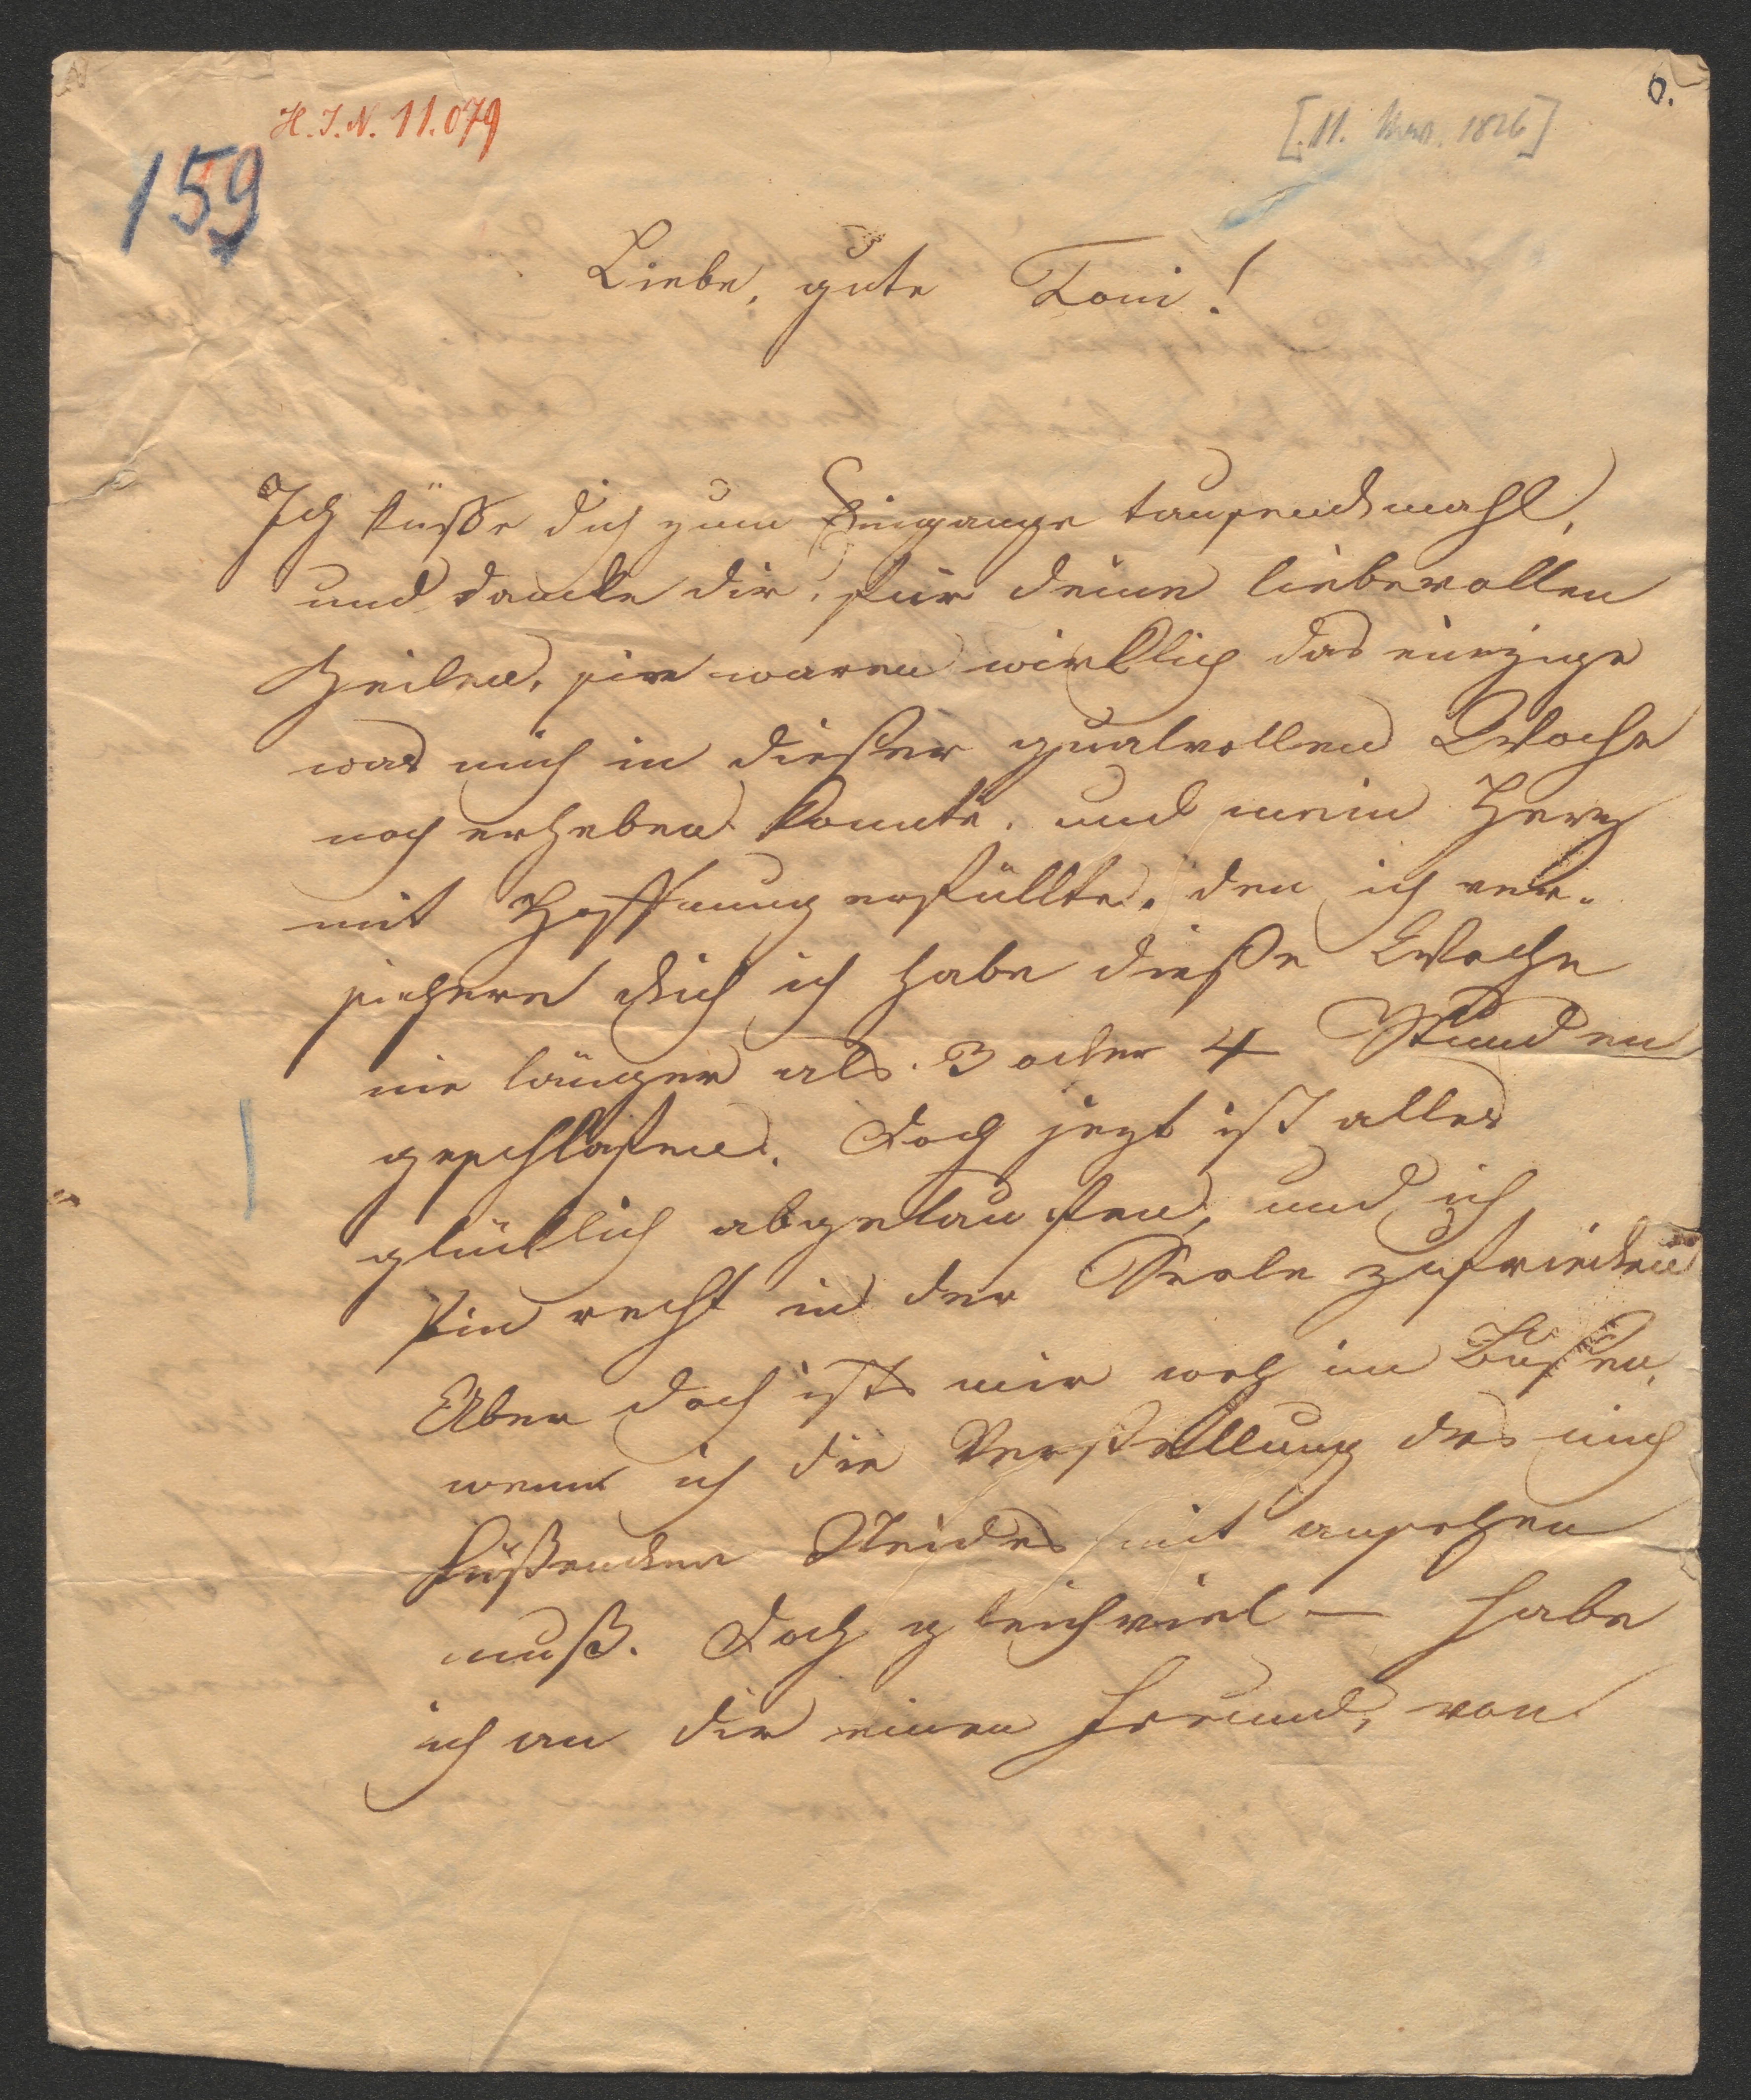 6.
H. I. N. 11.079
[11. 1826]
159
Liebe, gute Toni!
Ich küsse dich zum Eingange tausendmahl,
und dancke dir, für deine liebevollen
Zeilen, sie waren wirklich das einzige
was mich in dieser qualvollen Woche
noch erheben konnte, und mein Herz
mit Hoffnung erfüllte. den ich ver-
sichere dich ich habe diese Woche
nie länger als 3 oder 4 Stunden
geschlafen. Doch jezt ist alles
glücklich abgelaufen, und ich
bin recht in der Seele zufrieden
Aber doch ists mir weh im Busen,
wenn ich die Verstellung des mich
küßenden Neides mit ansehen
muß. Doch gleichviel — habe
ich an dir einen Freund, von